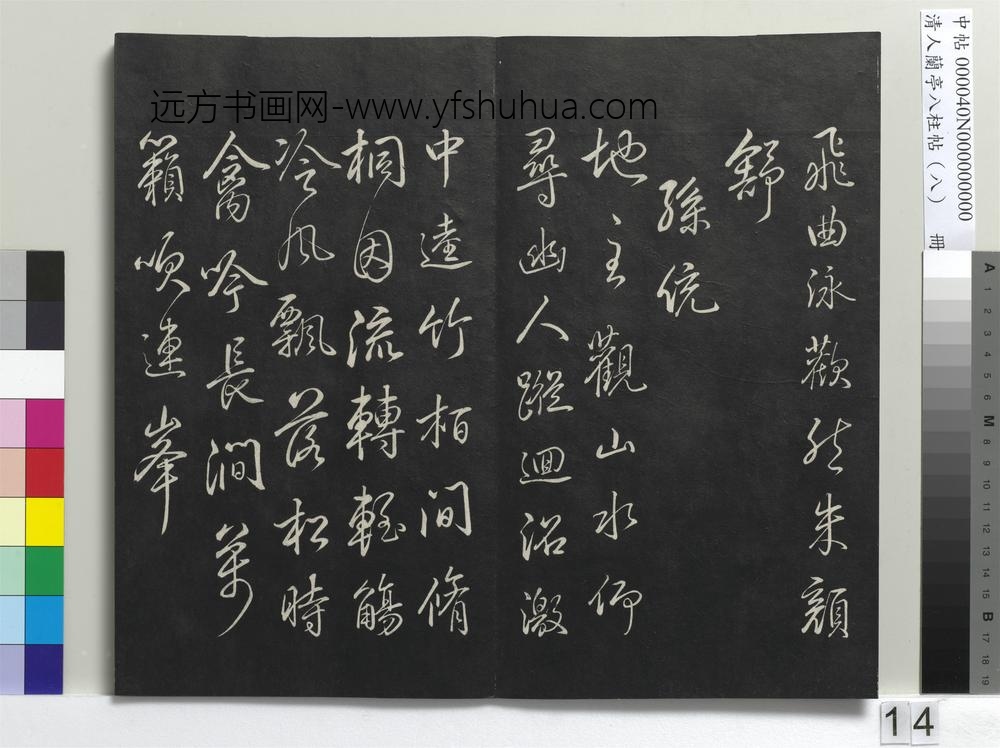 远方书画网-www.yfshuhua.com
中帖 000040N000000000
清人蘭亭八柱帖(八) 冊
飛曲泳歡然朱顏
舒
孫統
地主觀山水仰
尋幽人蹤迴沼激
中逵竹柏間脩
桐因流轉輕觴
冷風飄落松時
禽吟長澗萬
籟吹連峯
A 1 2 3 4 5 6 M 8 9 10 11 12 13 14 15 B 17 18 19
14